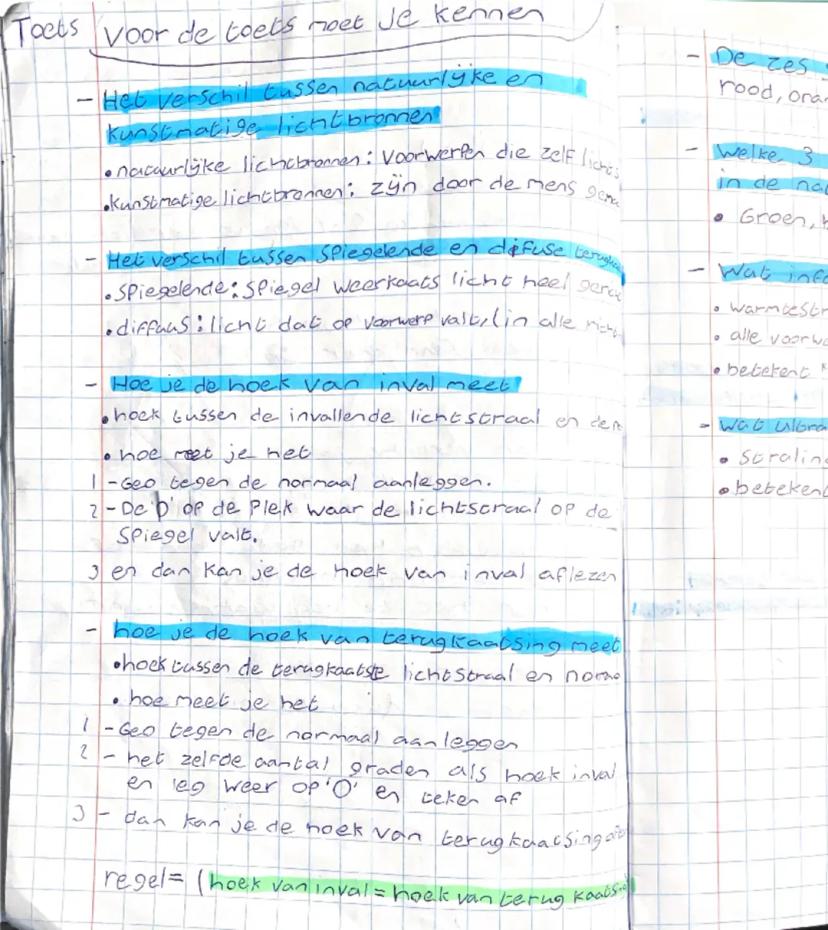 Toets voor de toets moet je kennen
- Het verschil tussen natuurlijke en
kunstmatige lichtbronnen
• natuurlijke lichtbronnen: voorwerpen die zelf
• kunstmatige lichtbronnen: zijn door de mens
- Het verschil tussen spiegelende en difuse
• spiegelende: spiegel weerkaats licht heel
• diffuus: licht dat op voorwerp valt, (in alle
- Hoe je de hoek van inval meet
• hoek tussen de invallende lichtstraal en
• hoe meet je het
1 - Geo tegen de normaal aanleggen.
2 - De '0' op de plek waar de lichtstraal op de
spiegel valt.
3 en dan kan je de hoek van inval aflezen
- hoe je de hoek van terugkaatsing meet
• hoek tussen de terugkaatste lichtstraal en
• hoe meet je het
1 - Geo tegen de normaal aanleggen
2 - het zelfde aantal graden als hoek inval
en leg weer op '0' en teken af
3 - dan kan je de hoek van terugkaatsing
regel = (hoek van inval = hoek van
- De zes
rood,
- Welke 3
in de
• Groen,
- Wat
• alle
• betekent
- Wat
• betekent